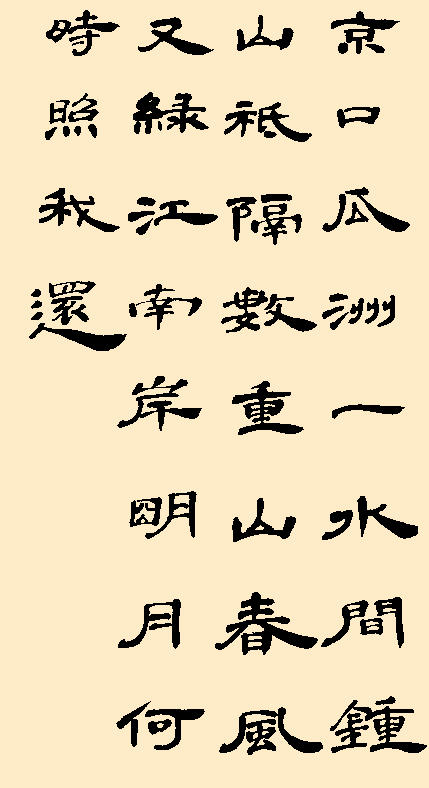 京口瓜洲一水間鍾
山祗隔數重山春風
又緑江南岸明月何
時照我還